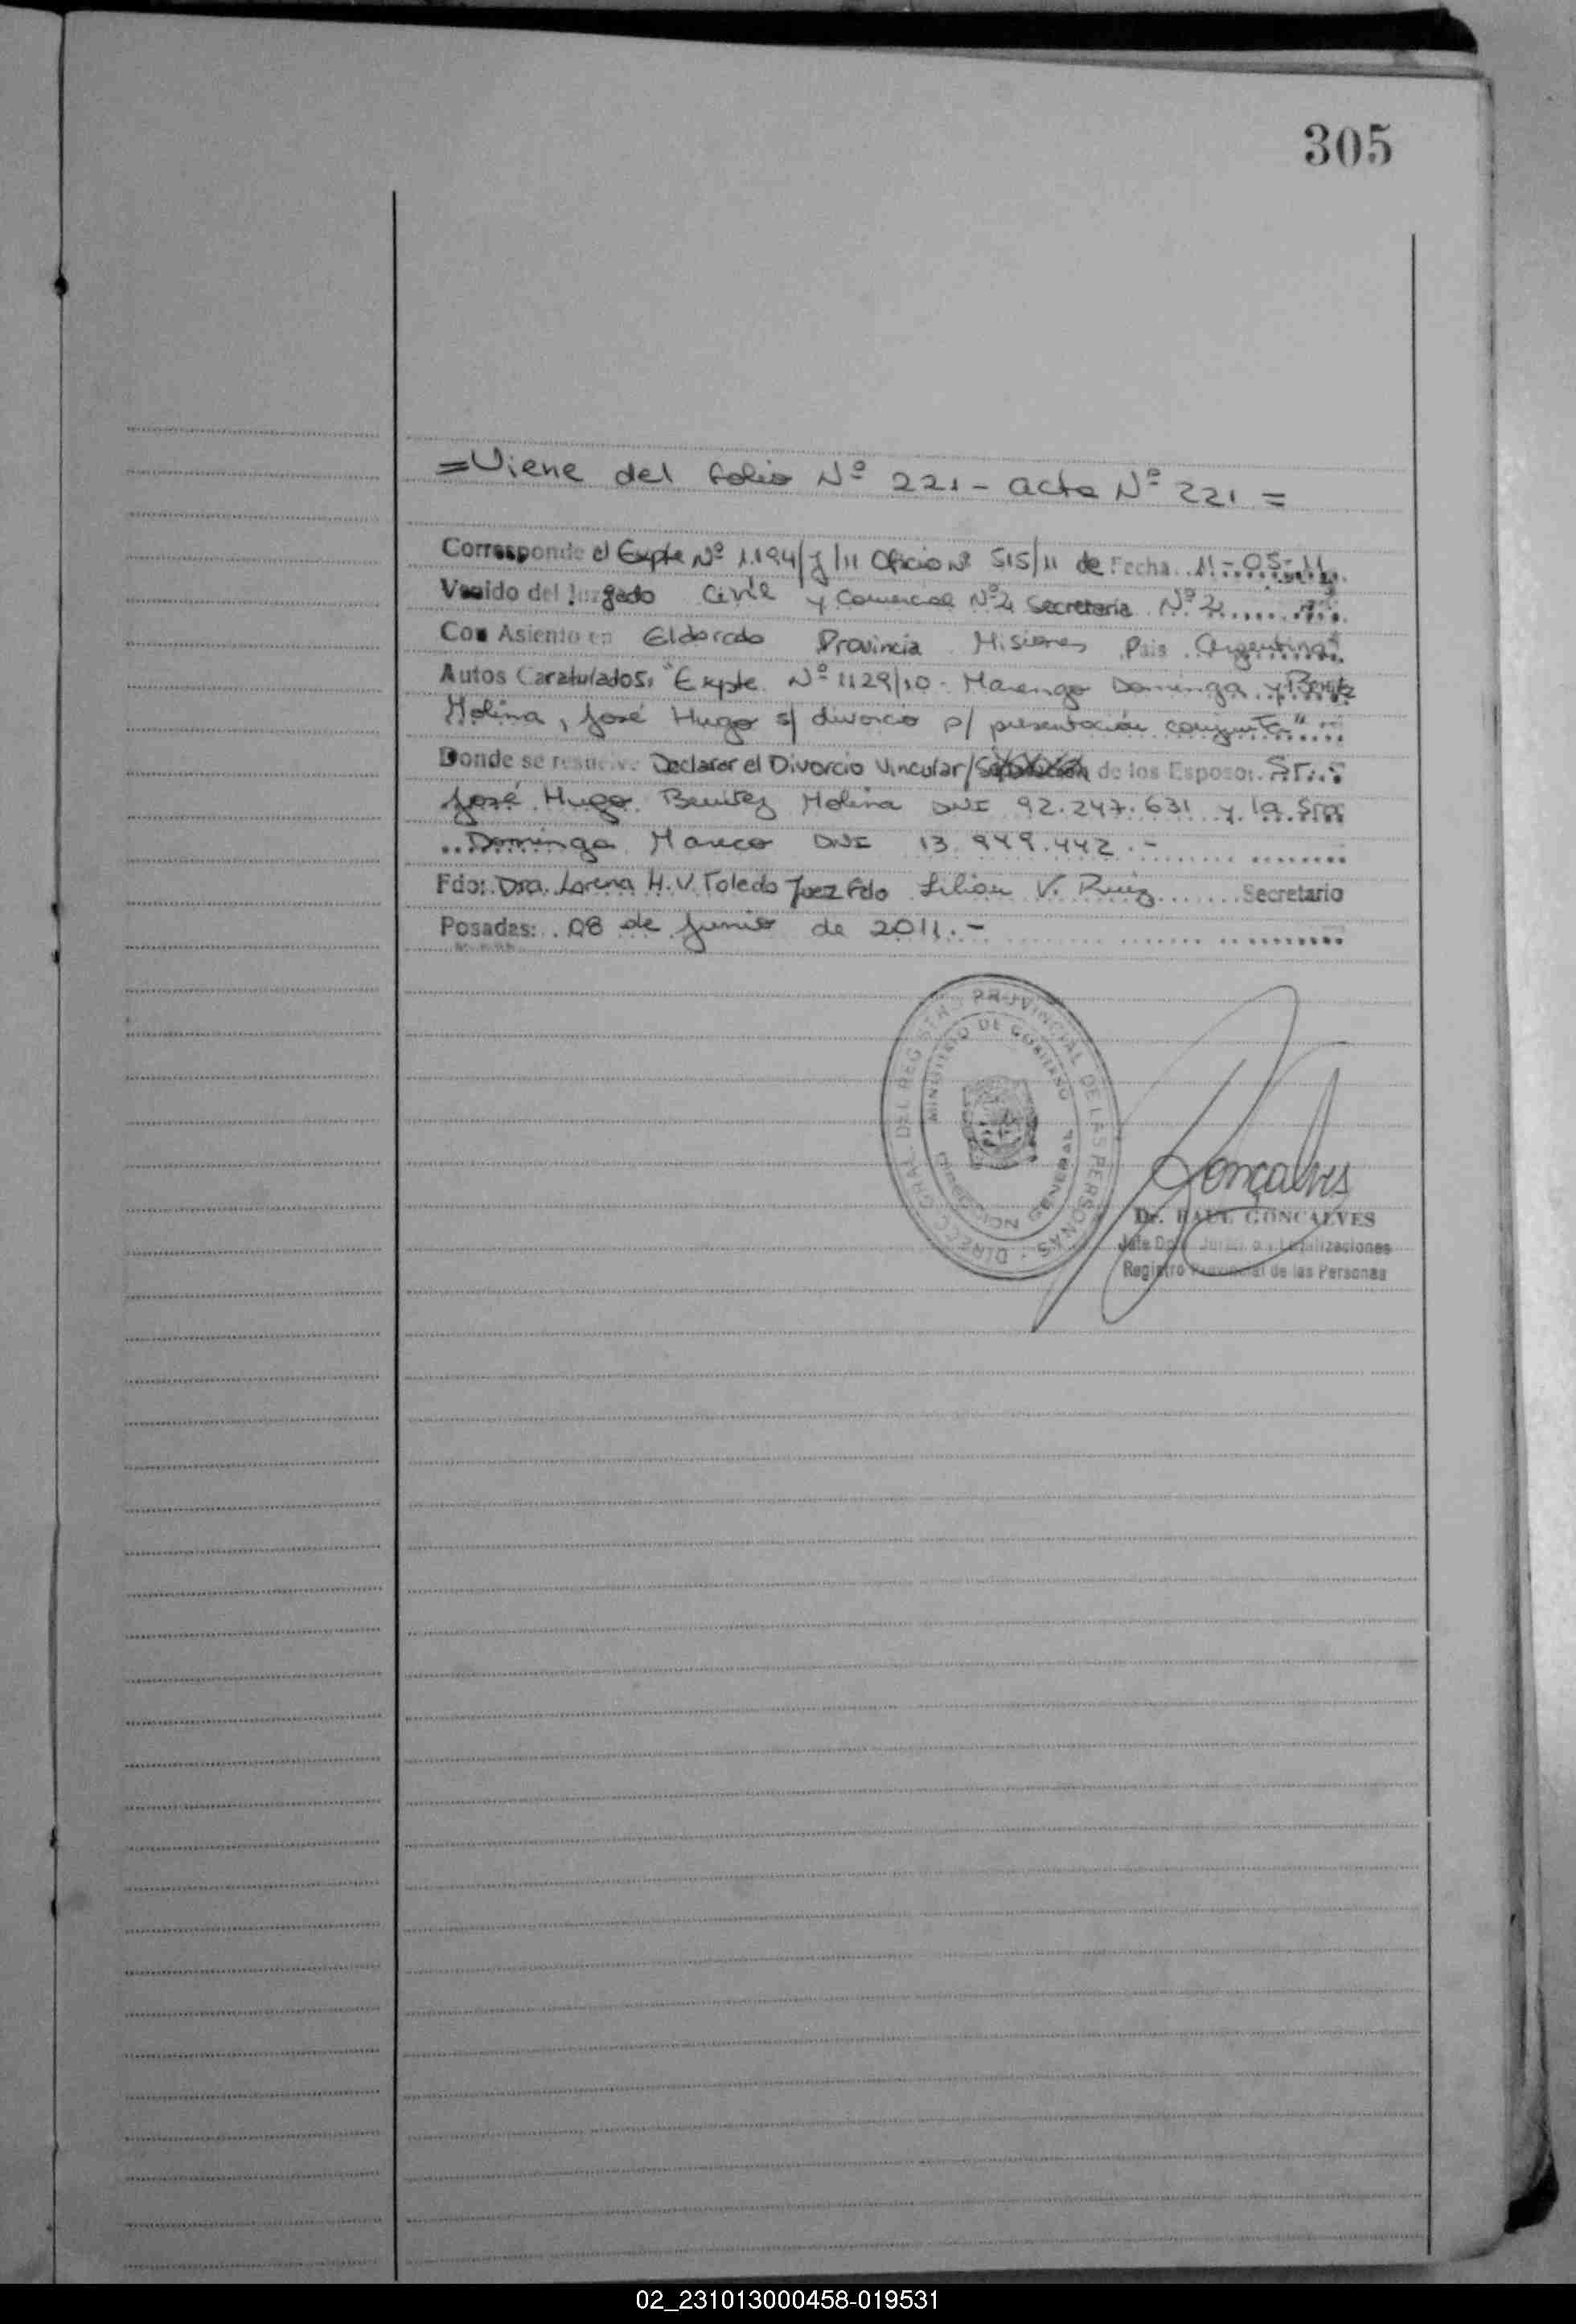 305
=Viene del folio Nº 221 - acta Nº 221 =
Corresponde el Expte Nº 1.194/J/11 Oficio Nº 515/11 de Fecha 11-05-11
Venido del Juzgado Civil y Comercial Nº 2 Secretaría Nº 2
Con Asiento en Eldorado Provincia Misiones Pais Argentina
Autos Caratulados: "Expte. Nº 1129/10 - Marengo Dominga y Benítez
Molina, José Hugo s/ divorcio p/ presentación conjunta"
Donde se resuelve Declarar el Divorcio Vincular/ de los Esposos: Sr.
José Hugo Benítez Molina DNI 92.247.631 y la Sra
Dominga Mareco DNI 13.949.442.-
Fdo: Dra. Lorena H. V. Toledo Juez Fdo Lilian V. Ruiz Secretario
Posadas: 08 de Junio de 2011.-
DIREC. GRAL. DEL REGISTRO PROVINCIAL DE LAS PERSONAS
MINISTERIO DE GOBIERNO
DIRECCION GENERAL
Goncalves
Dr. RAUL GONCALVES
Jefe Dpto. Jurídico y Legalizaciones
Registro Provincial de las Personas
02_231013000458-019531